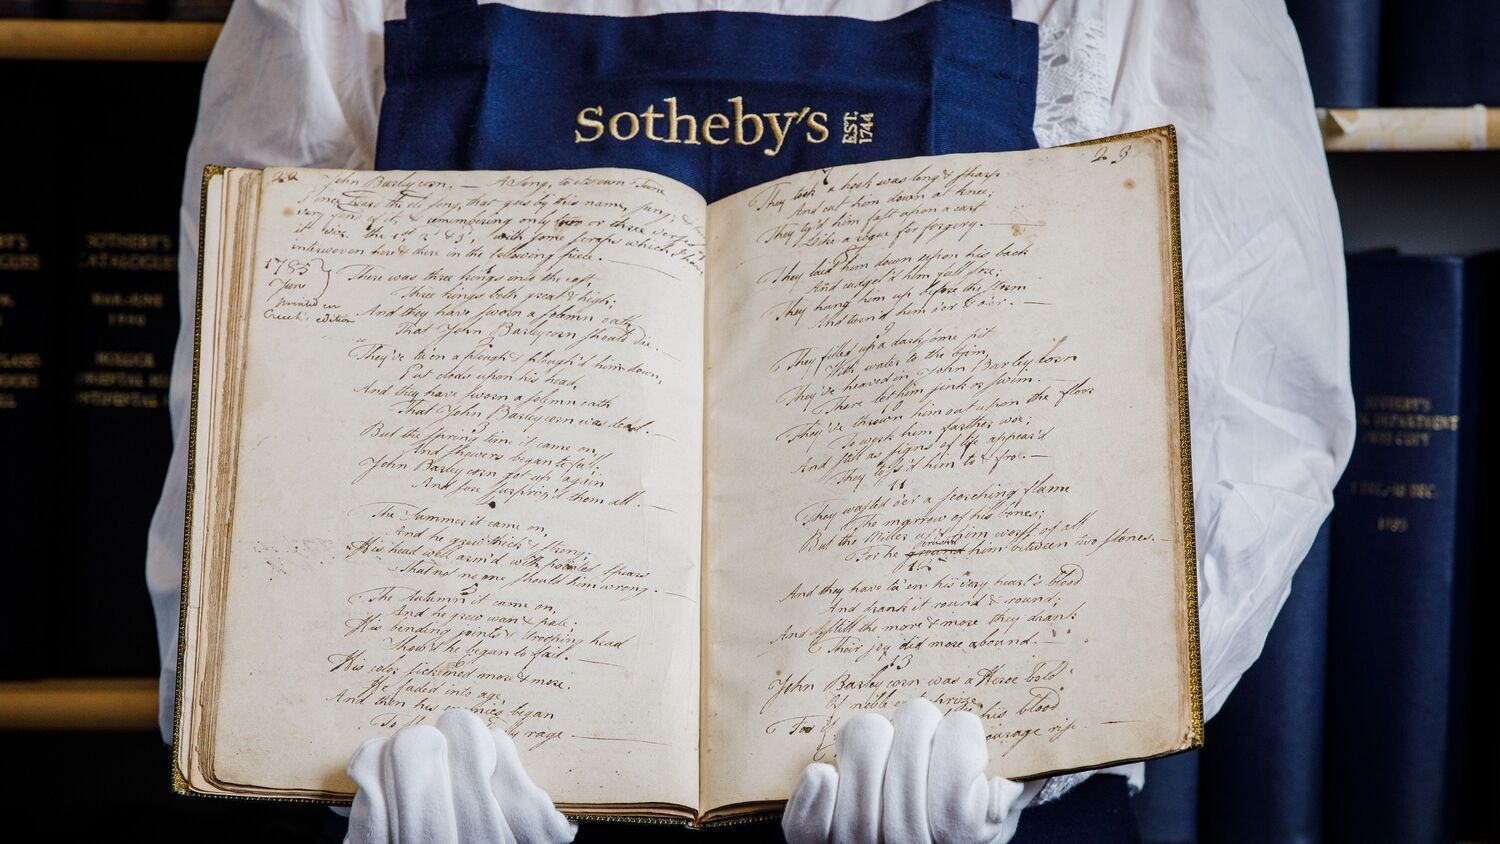 Sotheby's EST. 1744
22
John Barleycorn. — A Song, to its own Tune
I once heard the old song, that goes by this name, sung; &
very fond of it; & remembering only two or three verses of
it viz. the 1st, 2d & 3d, with some scraps which I have
interwoven here & there in the following piece. —
1785
June
printed in
Creech's edition
There was three kings into the east,
Three kings both great & high;
And they have sworn a solemn oath
That John Barleycorn should die. —
They've ta'en a plough & plough'd him down,
Put clods upon his head,
And they have sworn a solemn oath
That John Barleycorn was dead. —
3
But the spring time it came on,
And showers began to fall;
John Barleycorn got up again
And sore surpris'd them all. —
The Summer it came on,
And he grew thick & strong;
His head weel arm'd wi' pointed spears
That no one should him wrong. —
The Autumn it came on,
And he grew wan & pale;
His bending joints & drooping head
Show'd he began to fail. —
His color sicken'd more & more,
He faded into age,
And then his enemies began
To rage —
23
7
They took a hook was long & sharp
And cut him down at knee;
They ty'd him fast upon a cart
Like a rogue for forgery. —
They laid him down upon his back
And cudgel'd him full sore;
They hung him up before the storm
And turn'd him o'er & o'er. —
9
They filled up a darksome pit
With water to the brim,
They've heaved in John Barleycorn
There let him sink or swim. —
They've thrown him out upon the floor
To work him farther woe;
And still as signs of life appear'd
They toss'd him to & fro. —
11
They wasted o'er a scorching flame
The marrow of his bones;
But the Miller us'd him worst of all
For he him between two stones. —
12
And they have ta'en his very heart's blood
And drank it round & round;
And still the more & more they drank
Their joy did more abound. —
13
John Barleycorn was a Heroe bold
Of noble enterprize
For his blood
courage rise —
SOTHEBY'S
CATALOGUES